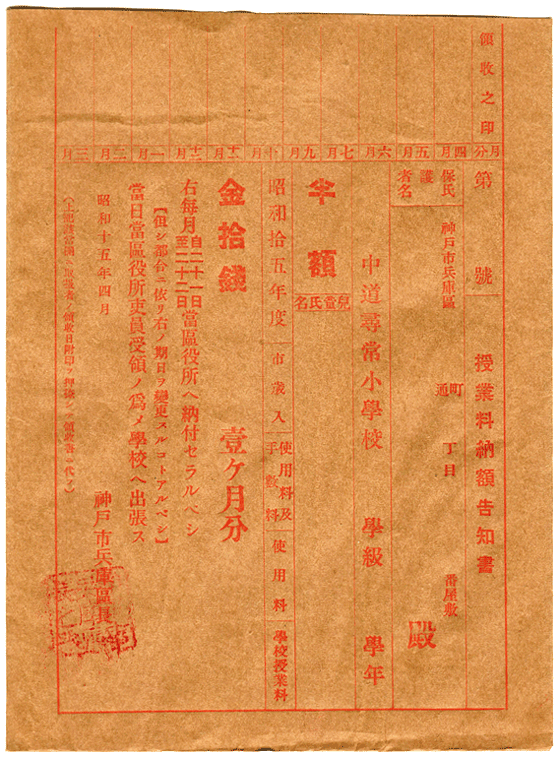 領收之印
月分 四月 五月 六月 七月 八月 九月 十月 十一月 十二月 一月 二月 三月
第 號 授業料納額告知書
保護者氏名 神戸市兵庫區 町通 丁目 番屋敷 殿
中道尋常小學校 學級 學年
半額 兒童氏名
昭和拾五年度 市歳入 使用料及手數料 使用料 學校授業料
金拾錢 壹ケ月分
右毎月自二十一日至二十二日當區役所ヘ納付セラルベシ
【但シ都合ニ依リ右ノ期日ヲ變更スルコトアルベシ】
當日當區役所吏員受領ノ爲メ學校ヘ出張ス
昭和十五年四月
神戸市兵庫區長
(上記該當欄ニ取扱者ノ領收日附印ヲ押捺シテ領收書ニ代フ)